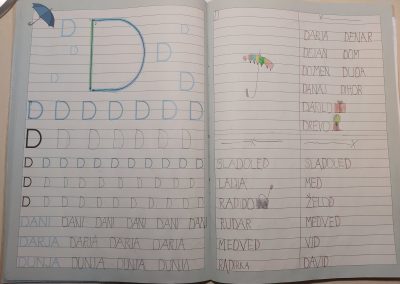 D
D
D
D
D
D
D D D D D D D D
D D D D D D D D
D D D D D D D D D D D
D D D D D D D D D D D
D D D D D D D D D D D
DANI DANI DANI DANI DAN
DARJA DARJA DARJA DARJA
DUNJA DUNJA DUNJA DUNJA
DARJA DENAR
DEJAN DOM
DOMEN DUDA
DANAJ DIHOR
DARILO
DREVO
SLADOLED SLADOLED
LADJA MED
RADIO ŽELOD
RUDAR MEDVED
MEDVED VID
RADIRKA DAVID